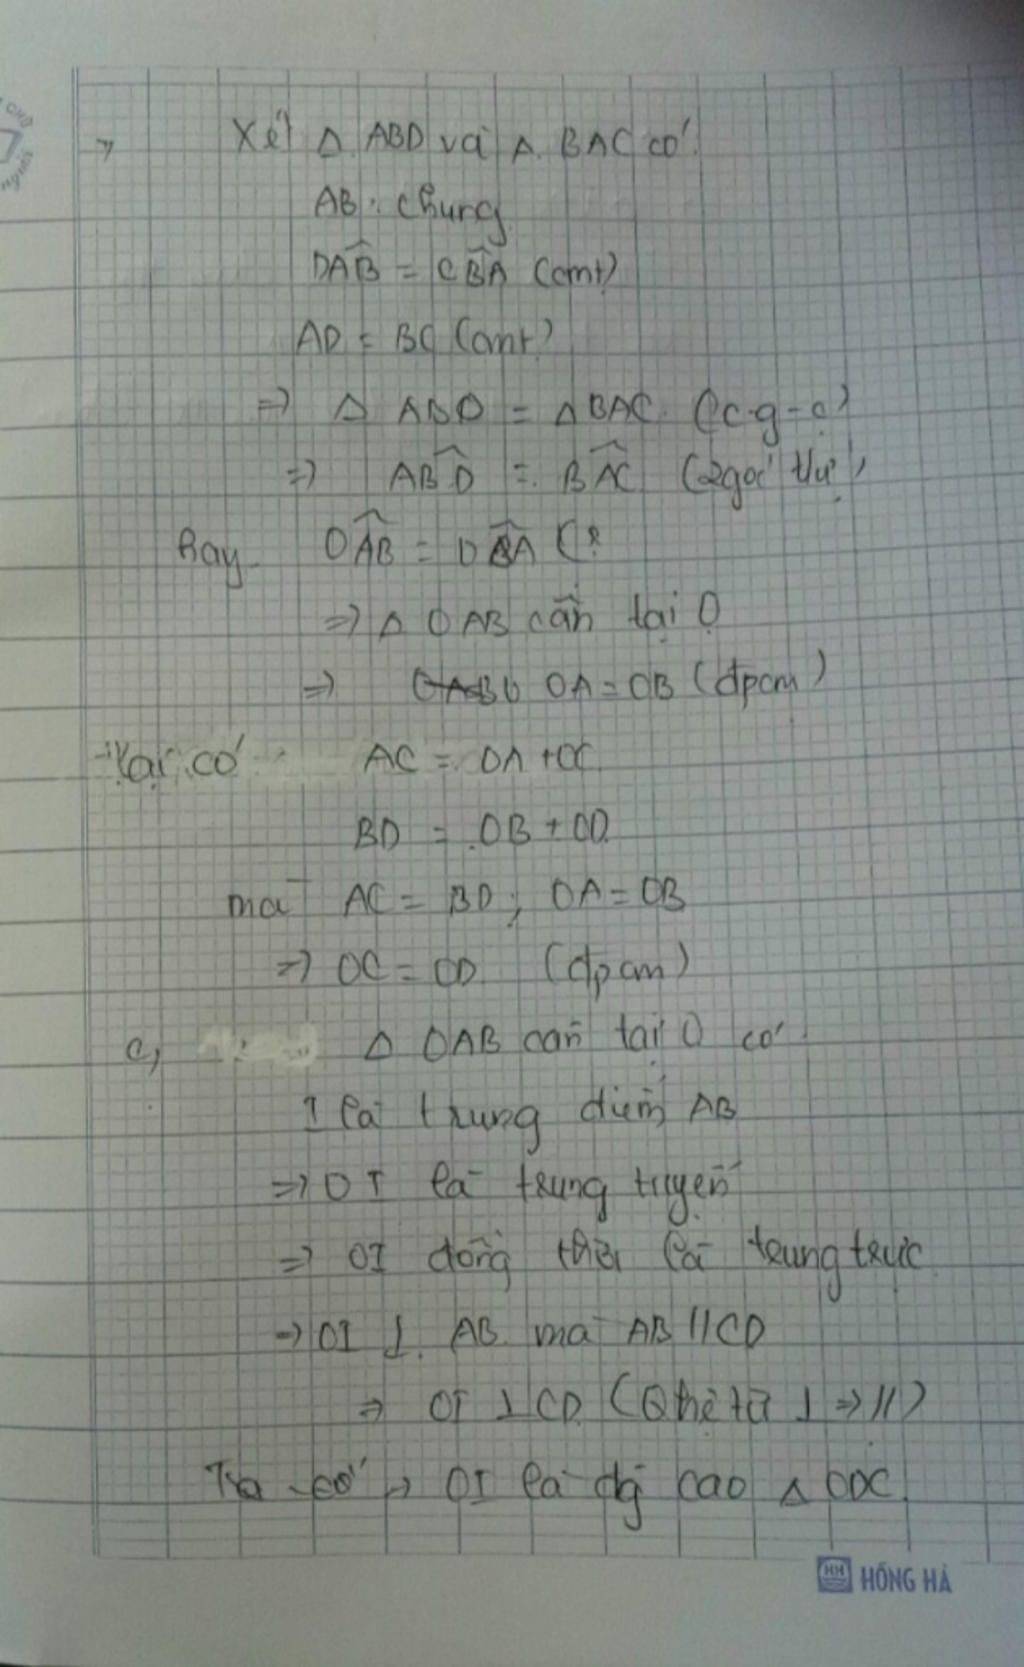 Xét Δ ABD và Δ BAC có:
AB: chung
DAB = CBA (cmt)
AD = BC (cmt)
=> Δ ABD = Δ BAC (c-g-c)
=> ABD = BAC (2 góc t/ư)
Hay OAB = OBA
=> Δ OAB cân tại O
=> OA = OB (đpcm)
Lại có: AC = OA + OC
BD = OB + OD
mà AC = BD; OA = OB
=> OC = OD (đpcm)
c, Δ OAB cân tại O có:
I là trung điểm AB
=> OI là trung tuyến
=> OI đồng thời là trung trực
=> OI ⊥ AB mà AB // CD
=> OI ⊥ CD (Q hệ từ ⊥ => //)
Ta có: OI là đg cao Δ ODC
HH HỒNG HÀ